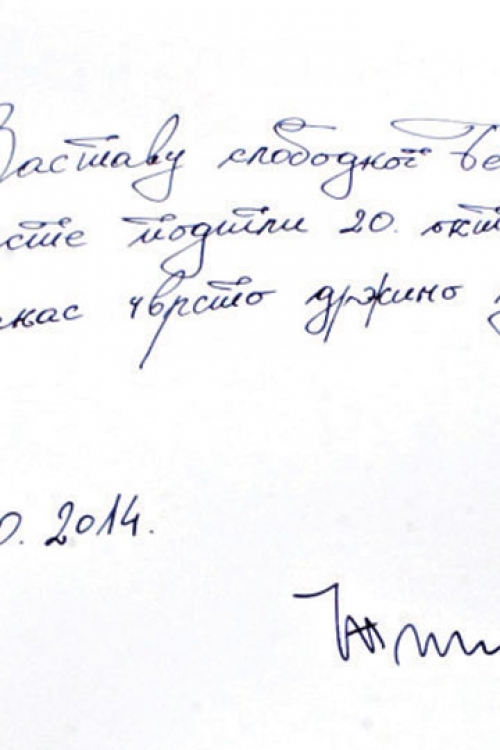 Заставу слободног Бе
сте подигли 20. окт
нас чврсто држимо
0. 2014.